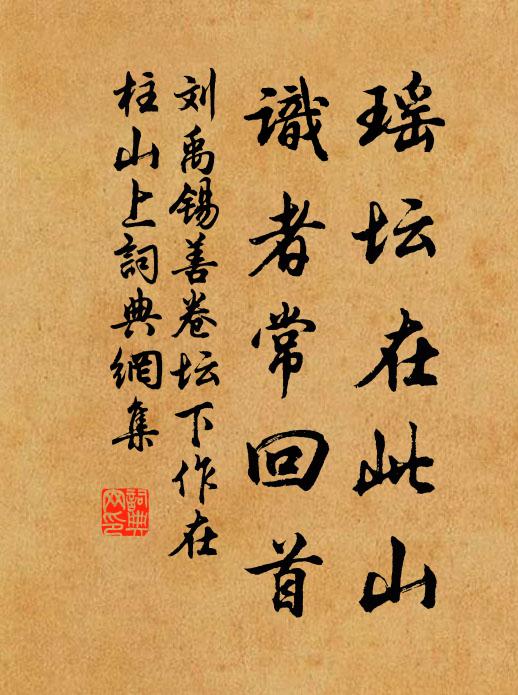 瑶坛在此山
識者常回首
刘禹锡善卷坛下作在
柱山上詞典網集
詞典
网印